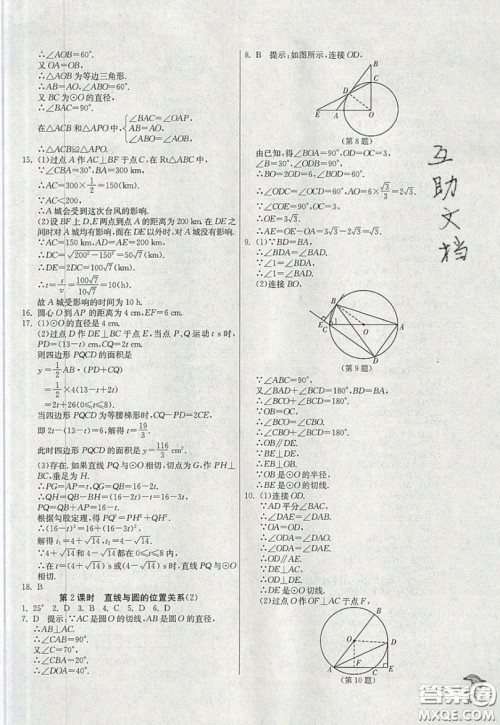 ∴∠AOB=60°.
又OA=OB,
∴△AOB为等边三角形.
∴AB=AO,∠ABO=60°.
又BC为⊙O的直径,
∴∠BAC=90°.
在△ABC和△APO中,{∠BAC=∠OAP, AB=AO, ∠ABO=∠AOB,
∴△ABC≌△APO.
15. (1)过点A作AC⊥BF于点C,在Rt△ABC中,
∵∠CBA=30°,BA=300 km,
∴AC=300×1/2=150(km).
∵AC<200,
∴A城会受到这次台风的影响.
(2)设BF上D,E两点到点A的距离为200 km.在DE之间时对A城均有影响,而在DE之外对A城没有影响.
∵AC=150 km,AD=AE=200 km,
∴DC=√(200²-150²)=50√7(km).
∴DE=2DC=100√7(km).
∴t=s/v=100√7/10√7=10(h).
故A城受影响的时间为10 h.
16. 圆心O到AP的距离为4 cm,EF=6 cm.
17. (1)⊙O的直径是4 cm.
(2)过点D作DE⊥BC于点E,当点P,Q运动t s时,
则四边形PQCD的面积是
y=1/2 AB·(PD+CQ)
=1/2×4(3-t+2t)
=2t+26(0≤t≤8).
当四边形PQCD为等腰梯形时,CQ-PD=2CE,
即2t-(13-t)=6,解得t=19/3.
此时四边形PQCD的面积y=116/3 cm².
(3)存在.如果直线PQ与⊙O相切于点G,作PH⊥BC,垂足为H.
∴PG=AP=t,QG=QB=16-2t.
∴QH=QB-BH=(16-2t)-t=16-3t,
PQ=BQ+AP=16-t.
根据勾股定理,得PQ²=PH²+QH².
∴(16-t)²=16+(16-3t)².
解得t₁=4+√14,t₂=4-√14.
∵4+√14和4-√14都在0≤t≤8内,
∴当t=4+√14或t=4-√14时,直线PQ与⊙O相切.
18. B
第2课时 直线与圆的位置关系(2)
1. 25° 2. D 3. B 4. C 5. D 6. D
7. D 提示:如图,∵AC是圆O的切线,AB是圆O的直径,
∴AB⊥AC.
∴∠CAB=90°.
又∵∠C=70°,
∴∠CBA=20°.
∴∠AOD=40°.
8. B 提示:如图所示,连接OD,
B
C
D
E
A
O
(第8题)
由已知,得∠BOA=90°,OD=OC=3,∠B=30°,∠ODB=90°,
∴BO=2OD=6,∠BOD=60°.
∴∠ODC=∠OCD=60°,AO=6×√3/3=2√3.
∵∠COE=90°,OC=3,
∴OE=3√3.
∴AE=OE-OA=3√3-2√3=√3.
9. (1)∵BD=BA,
∴∠BDA=∠BAD.
∵∠1=∠BDA,
∴∠1=∠BAD.
(2)连接BO,
B
E
C
1
O
A
D
(第9题)
∵∠ABC=90°,
又∵∠BAD+∠BCD=180°,
∴∠BCO+∠BCD=180°.
∵OB=OC,
∴∠BCO=∠CBO.
∴∠CBO+∠BCD=180°.
∴OB∥DE.
∵BE⊥DE,
∴EB⊥OB.
∵OB是⊙O的半径,
∴BE是⊙O的切线.
10. (1)连接OD.
∵AD平分∠BAC,
∴∠DAE=∠DAB.
∵OA=OD,
∴∠ODA=∠DAO.
∴∠ODA=∠DAE.
∴OD∥AE.
∵DE⊥AC,
∴OD⊥DE.
∴DE是⊙O切线.
(2)过点O作OF⊥AC于点F,
B
O
D
A
F
C
E
(第10题)
互助文档
答案圈
MXQE.COM